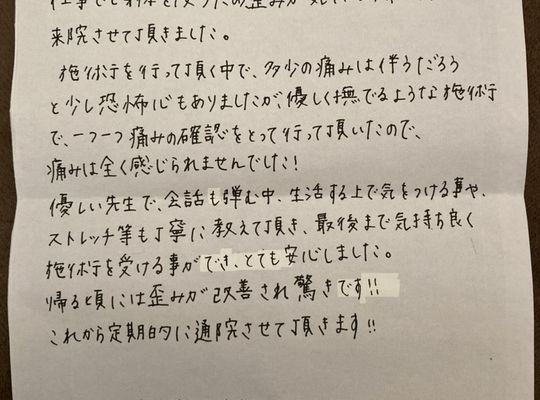 来院させて頂きました。
施術を行って頂く中で、多少の痛みは伴うだろう
と少し恐怖心もありましたが、優しく撫でるような施術
で、一つ一つ痛みの確認をとって行って頂いたので、
痛みは全く感じられませんでした!
優しい先生で、会話も弾む中、生活する上で気をつける事や、
ストレッチ等も丁寧に教えて頂き、最後まで気持ち良く
施術を受ける事ができ、とても安心しました。
帰る頃には歪みが改善され驚きです!!
これから定期的に通院させて頂きます!!